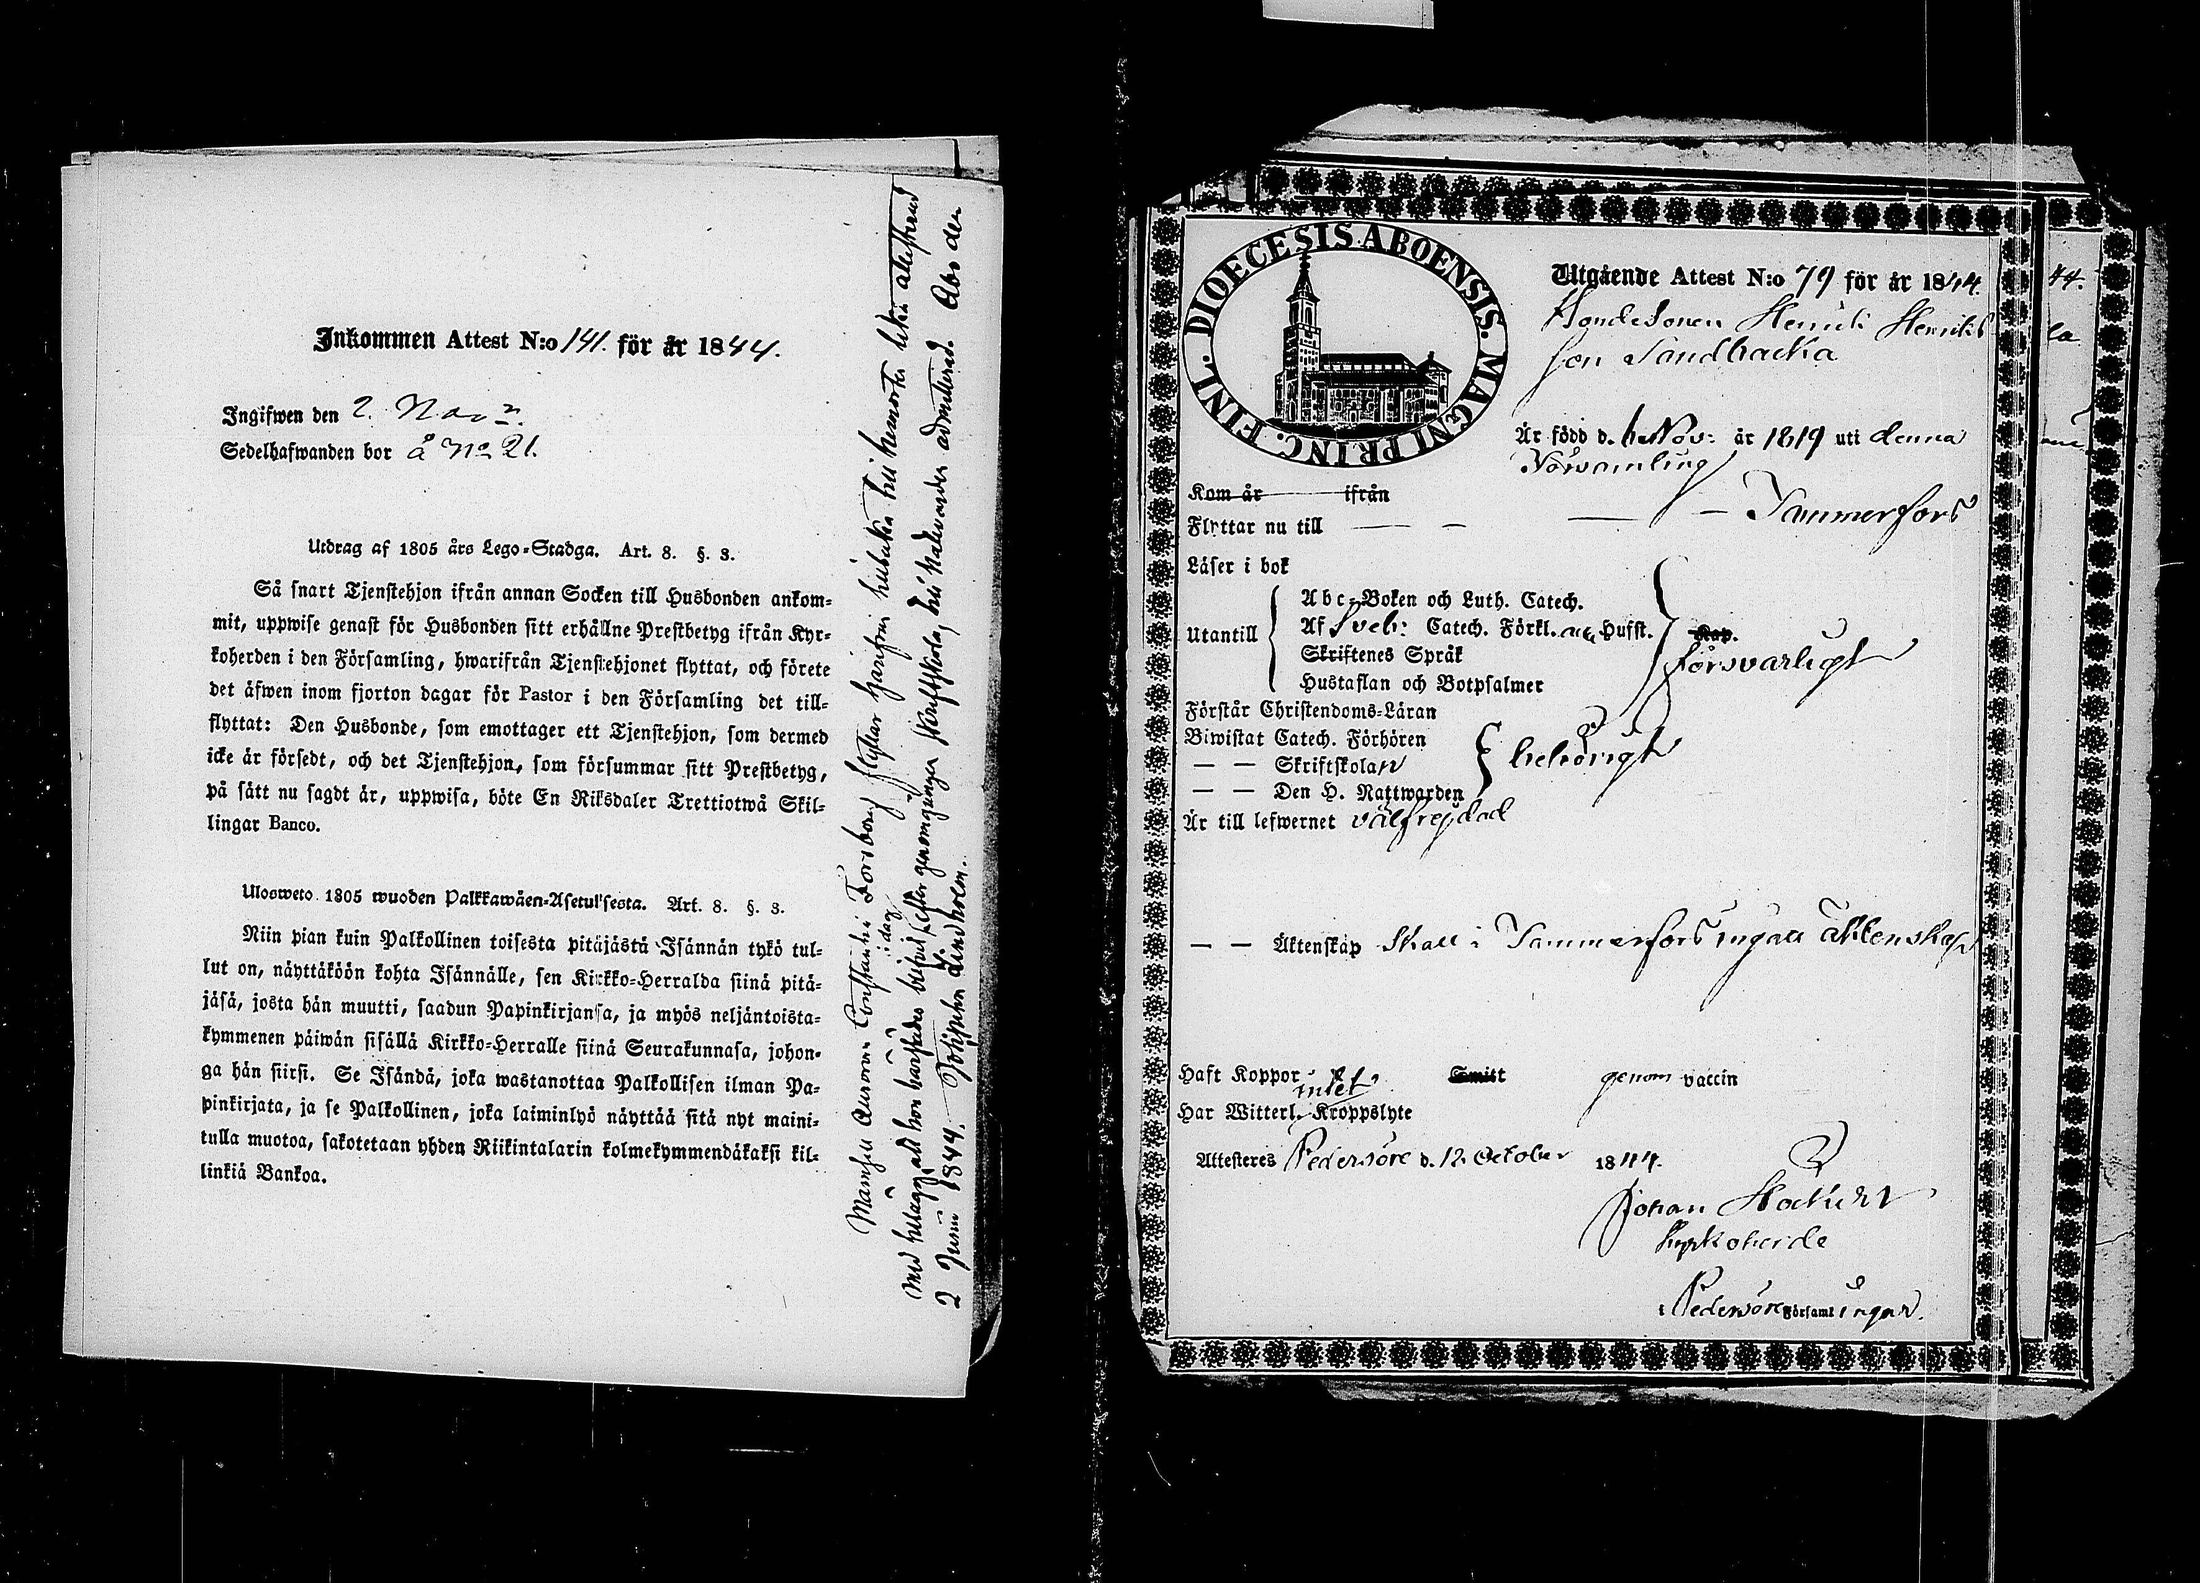 Inkommen Attest N:o 141. för år 1844.
Ingifwen den 2. Nov
Sedelhafwanden bor å No 21.
Utdrag af 1805 års Lego-Stadga. Art. 8. §. 3.
Så snart Tjenstehjon ifrån annan Socken till Husbonden ankom-
mit, uppwise genast för Husbonden sitt erhållne Prestbetyg ifrån Kyr-
koherden i den Församling, hwarifrån Tjenstehjonet flyttat, och förete
det äfwen inom fjorton dagar för Pastor i den Församling det till-
flyttat: Den Husbonde, som emottager ett Tjenstehjon, som dermed
icke är försedt, och det Tjenstehjon, som försummar sitt Prestbetyg,
på sätt nu sagdt är, uppwisa, böte En Riksdaler Trettiotwå Skil-
lingar Banco.
Ulosweto 1805 wuoden Palkkawäen-Asetuksesta. Art. 8. §. 3.
Niin pian kuin Palkollinen toisesta pitäjästä Isännän tykö tul-
lut on, näyttäköön kohta Isännälle, sen Kirkko-Herralda siinä pitä-
jäsä, josta hän muutti, saadun Papinkirjansa, ja myös neljäntoista-
kymmenen päiwän sisällä Kirkko-Herralle siinä Seurakunnasa, johon-
ga hän siirsi. Se Isändä, joka wastanottaa Palkollisen ilman Pa-
pinkirjata, ja se Palkollinen, joka laiminlyö näyttää sitä nyt maini-
tulla muotoa, sakotetaan yhden Riikintalarin kolmekymmendäkaksi kil-
linkiä Bankoa.
Mamsell Aurora Constantia Forsborg flyttar härifrån tillbaka till hemorten
i dag
med tillägg att hon härstädes blifvit efter genomgången skriftskola, till nattvarden admitterad. Åbo den
2 Junii 1844. Lindholm.
DIOECESIS ABOENSIS. MAGNI PRINC. FINL.
Utgående Attest N:o 79 för år 1844.
Bondesonen Henrik Henriks
son Sandbacka
Är född d. Nov: år 1819 uti denna
Församling
Kom år ifrån
Flyttar nu till — — — — Tammerfors
Läser i bok
Utantill
Abc-Boken och Luth. Catech.
Af Sveb: Catech. Förkl. Husst.
Skriftenes Språk
Hustaflan och Botpsalmer
Kap.
försvarligt
Förstår Christendoms-Läran
Biwistat Catech. Förhören
— — Skriftskolan
— — Den H. Nattwarden
behörigt
Är till lefwernet välfrejdad
— — Äktenskap Skall i Tammerfors ingå äktenskap
Haft Koppor Smitt genom vaccin
intet
Har Witterl. Kroppslyte
Attesteres Pedersöre d. 12 October 1844.
Johan
Kyrkoherde
i Pedersöre Församlingar.
44.